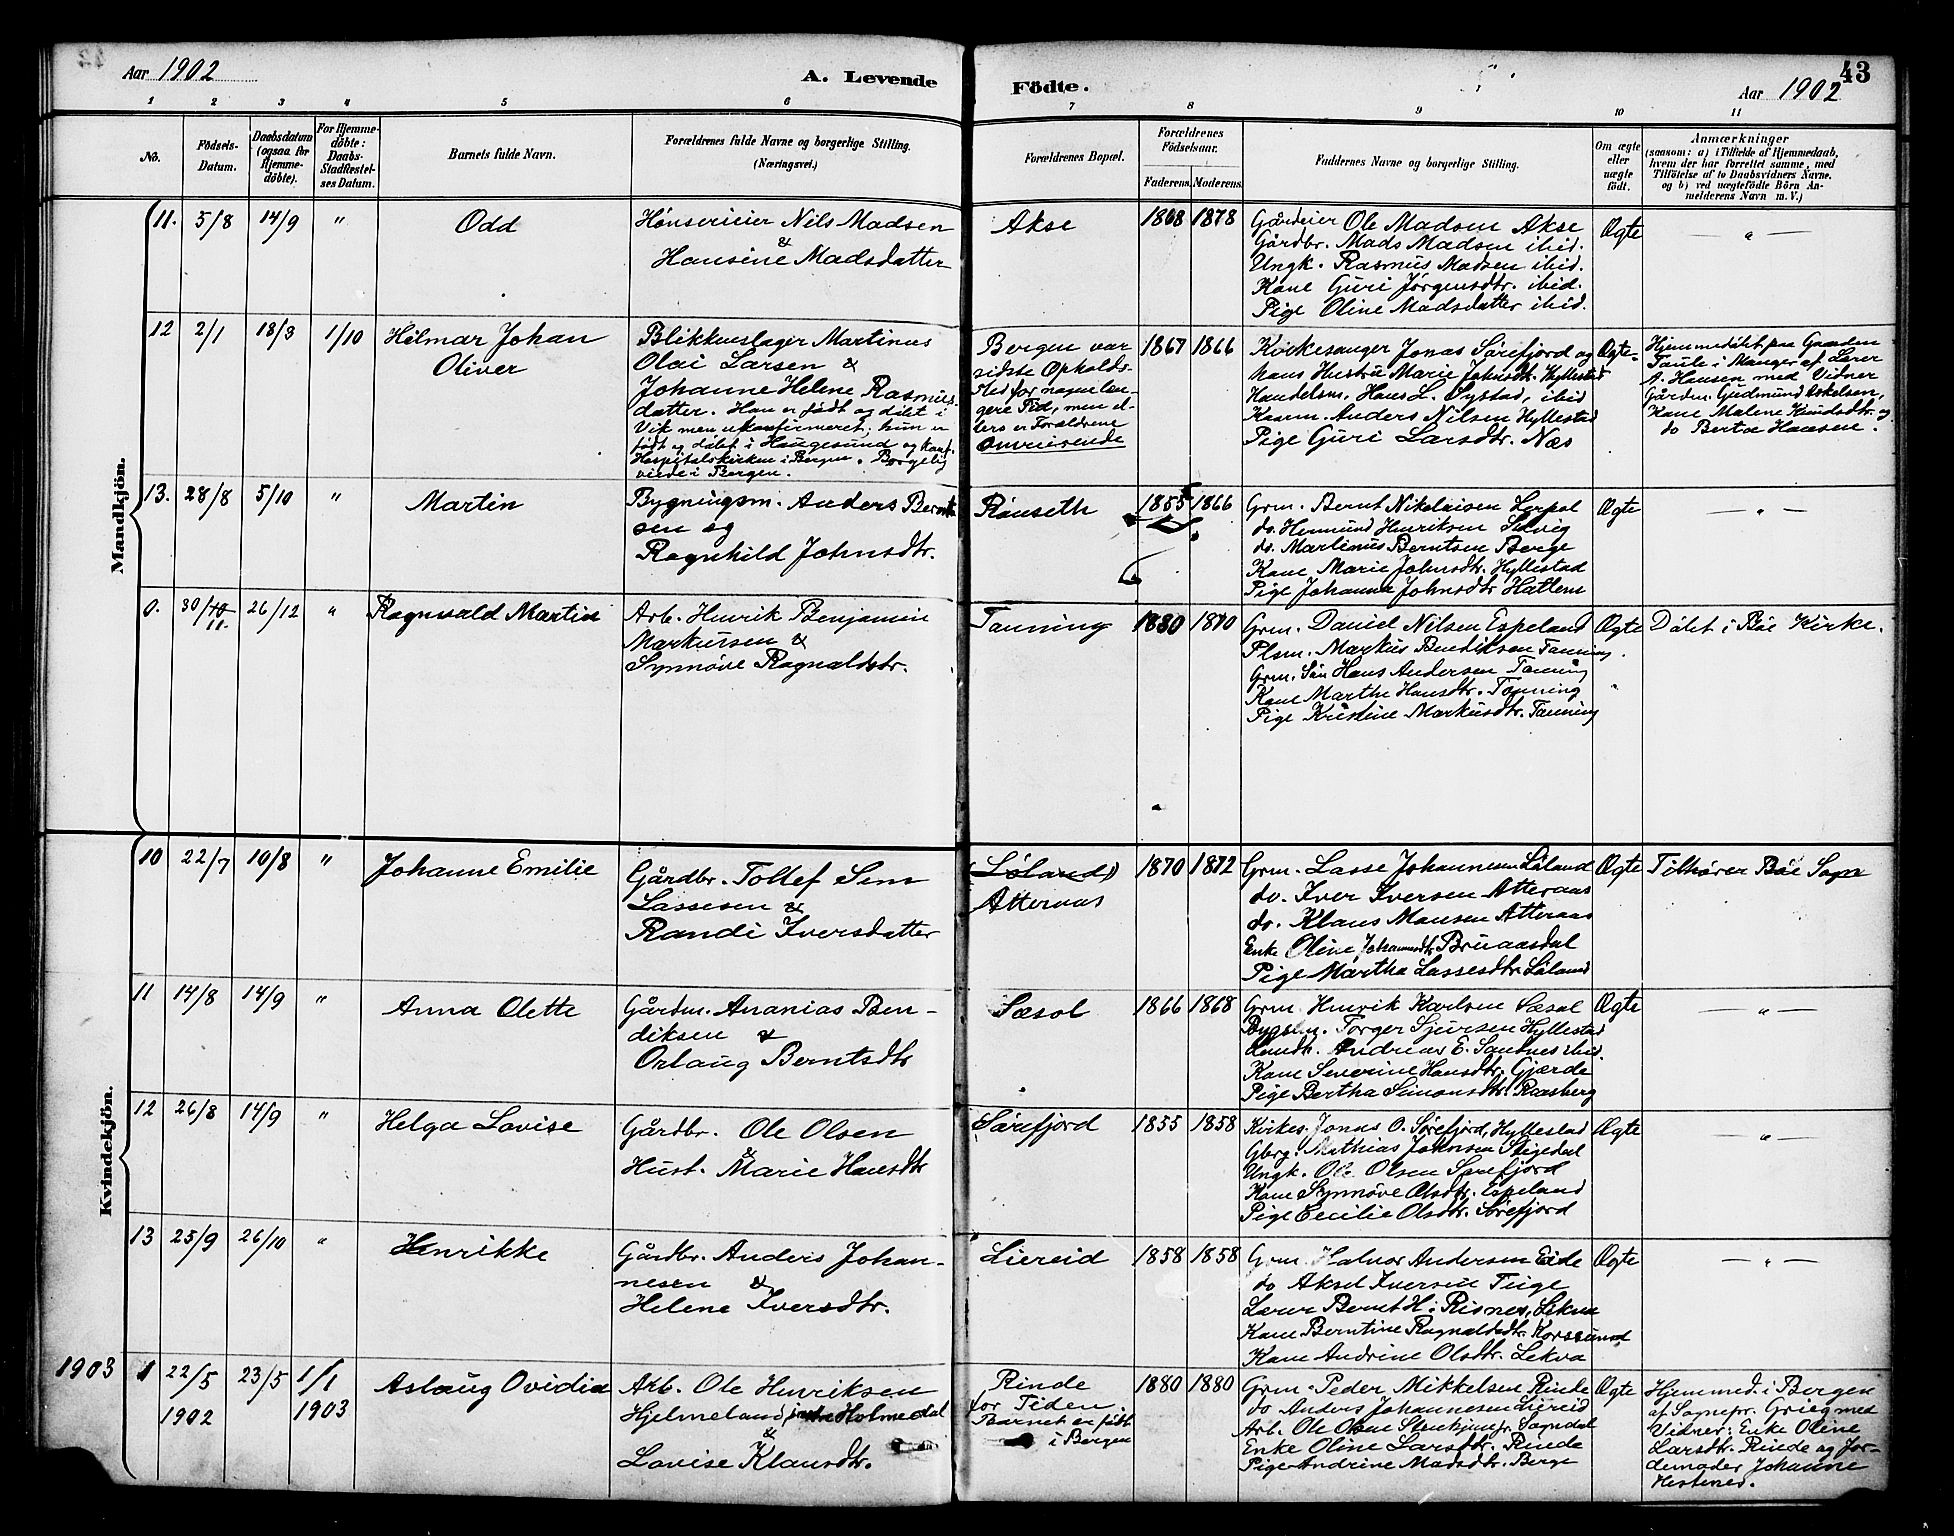 Aar 1902
A. Levende
Födte.
Aar 1902
43
1 2 3 4 5 6 7 8 9 10 11
No.
Födsels-
Datum.
Daabsdatum
(ogsaa for
Hjemme-
döbte).
For Hjemme-
döbte:
Daabs-
Stadfæstel-
ses Datum.
Barnets fulde Navn.
Forældrenes fulde Navne og borgerlige Stilling.
(Næringsvei.)
Forældrenes Bopæl.
Forældrenes
Födselsaar.
Faderens. Moderens.
Faddernes Navne og borgerlige Stilling.
Om ægte
eller
uægte
födt.
Anmærkninger
(saasom: a) i Tilfælde af Hjemmedaab,
hvem der har forrettet samme, med
Tilföielse af to Daabsvidners Navne.
og b) ved uægtefödte Börn An-
melderens Navn m. V.)
Mandkjön.
11. 5/8 14/9 "
Odd
Hönsereieier Nils Madsen
&
Hansine Madsdatter
Akse
1868 1878
Gårdeier Ole Madsen Akse
Gårdbr. Mads Madsen ibid.
Ungk. Rasmus Madsen ibid.
Kone Guri Jörgensdtr. ibid.
Pige Oline Madsdatter ibid.
Ægte
— " —
12 2/1 18/3 1/10
Hilmar Johan
Oliver
Blikkenslager Martinus
Olai Larsen &
Johanne Helene Rasmus-
datter. Han er födt og döbt i
Vik men ukonfirmeret; hun er
födt og döbt i Haugesund og konf.
Hospitalskirken i Bergen. Borgelig
viede i Bergen.
Bergen var
sidste Opholds-
sted for nogen læn-
gere Tid, men el-
lers er Forældrene
omreisende
1867 1866
Kirkesanger Jonas Sörefjord og
hans Hustru Marie Johnsdtr. Hyllestad
Handelsm. Hans L. Öystad, ibid
Kaarm. Anders Nilsen Hyllestad
Pige Guri Larsdtr. Næs
Ægte
Hjemmedöbt paa Gaarden
Taule i Manger af Lærer
A. Hansen med Vidner
Gårdm. Gudmund Askelsen,
Kone Malene Knudsdtr. og
do Berta Hansen.
13. 28/8 5/10 "
Martin
Bygningsm. Anders Bernt-
sen og
Ragnhild Johnsdtr.
Rönseth
1855 1866
Grm. Bernt Nikolaisen Lerpol
do. Hermund Henriksen
do. Martinus Berntsen Berge
Kone Marie Johnsdtr. Hyllestad
Pige Johanna Johnsdtr Hatlem
Ægte
— " —
0. 30/10 11. 26/12 "
Ragnvald Martin
Arb. Henrik Benjamin
Markussen &
Synnöve Ragnaldsdtr.
Tanning
1880 1870
Grm. Daniel Nilsen Espeland
Plsm. Markus Bendiksen Tanning
Grm. Sön Hans Andersen Tanning
Kone Marthe Hansdtr. Tanning
Pige Kristine Markusdtr. Tanning
Ægte
Döbt i Böe Kirke.
Kvindekjön.
10 22/7 10/8 "
Johanne Emilie
Gårdbr. Tollef Sem
Lassesen &
Randi Iversdatter
(Löland)
Atteraas
1870 1872
Grm. Lasse Johannesen Löland
do. Iver Iversen Atteraas
do. Klaus Monsen Atteraas
Enke Oline Johannesdtr. Bruaasdal
Pige Martha Lassesdtr. Löland
Ægte
Tilhører Böe Sogn
11 14/8 14/9 "
Anna Olette
Gårdm. Ananias Ben-
diksen &
Orlaug Berntsdtr
Sæsol
1866 1868
Grm. Henrik Karlsen Sæsol
Bygsm. Torger Sjursen Hyllestad
Landh. Andreas E. Sandnes ibid.
Kone Severine Hansdtr. Gjærde
Pige Bertha Simonsdtr. Raasberg
Ægte
— " —
12 26/8 14/9 "
Helga Lovise
Gårdbr. Ole Olsen
&
Hust. Marie Hansdtr
Sörefjord
1855 1858
Kirkes. Jonas O. Sörefjord, Hyllestad
Gbrg. Mathias Johnsen Stigedal
Ungk. Ole Olsen Sörefjord
Kone Synnöve Olsdtr. Espeland
Pige Cecilie Olsdtr. Sörefjord
Ægte
— " —
13 25/9 26/10 "
Henrikke
Gårdbr. Anders Johan-
nesen &
Helene Iversdtr.
Liereid
1858 1858
Grm. Halvor Andersen Eide
do Aksel Iversen Teige
Lærer Bernt H. Risnes, Lekva
Kone Berntine Ragnaldsdtr. Korssund
Kone Andrine Olsdtr. Lekva
Ægte
— " —
1903
1 22/5 1902 23/5 1/1 1903
Aslaug Ovidia
Arb. Ole Henriksen
Hjelmeland, indre Holmedal
&
Lovise Klausdtr.
Rinde
for Tiden
Barnet er födt
i Bergen
1880 1880
Grm. Peder Mikkelsen Rinde
do Anders Johannesen Liereid
Arb. Ole Olsen Sogndal
Enke Oline Larsdtr. Rinde
Pige Andrine Madsdtr. Berge
Ægte
Hjemmed. i Bergen
af Sognepr. Grieg med
Vidner: Enke Oline
Larsdtr. Rinde og Jor-
demoder Johanne
Hestenes.